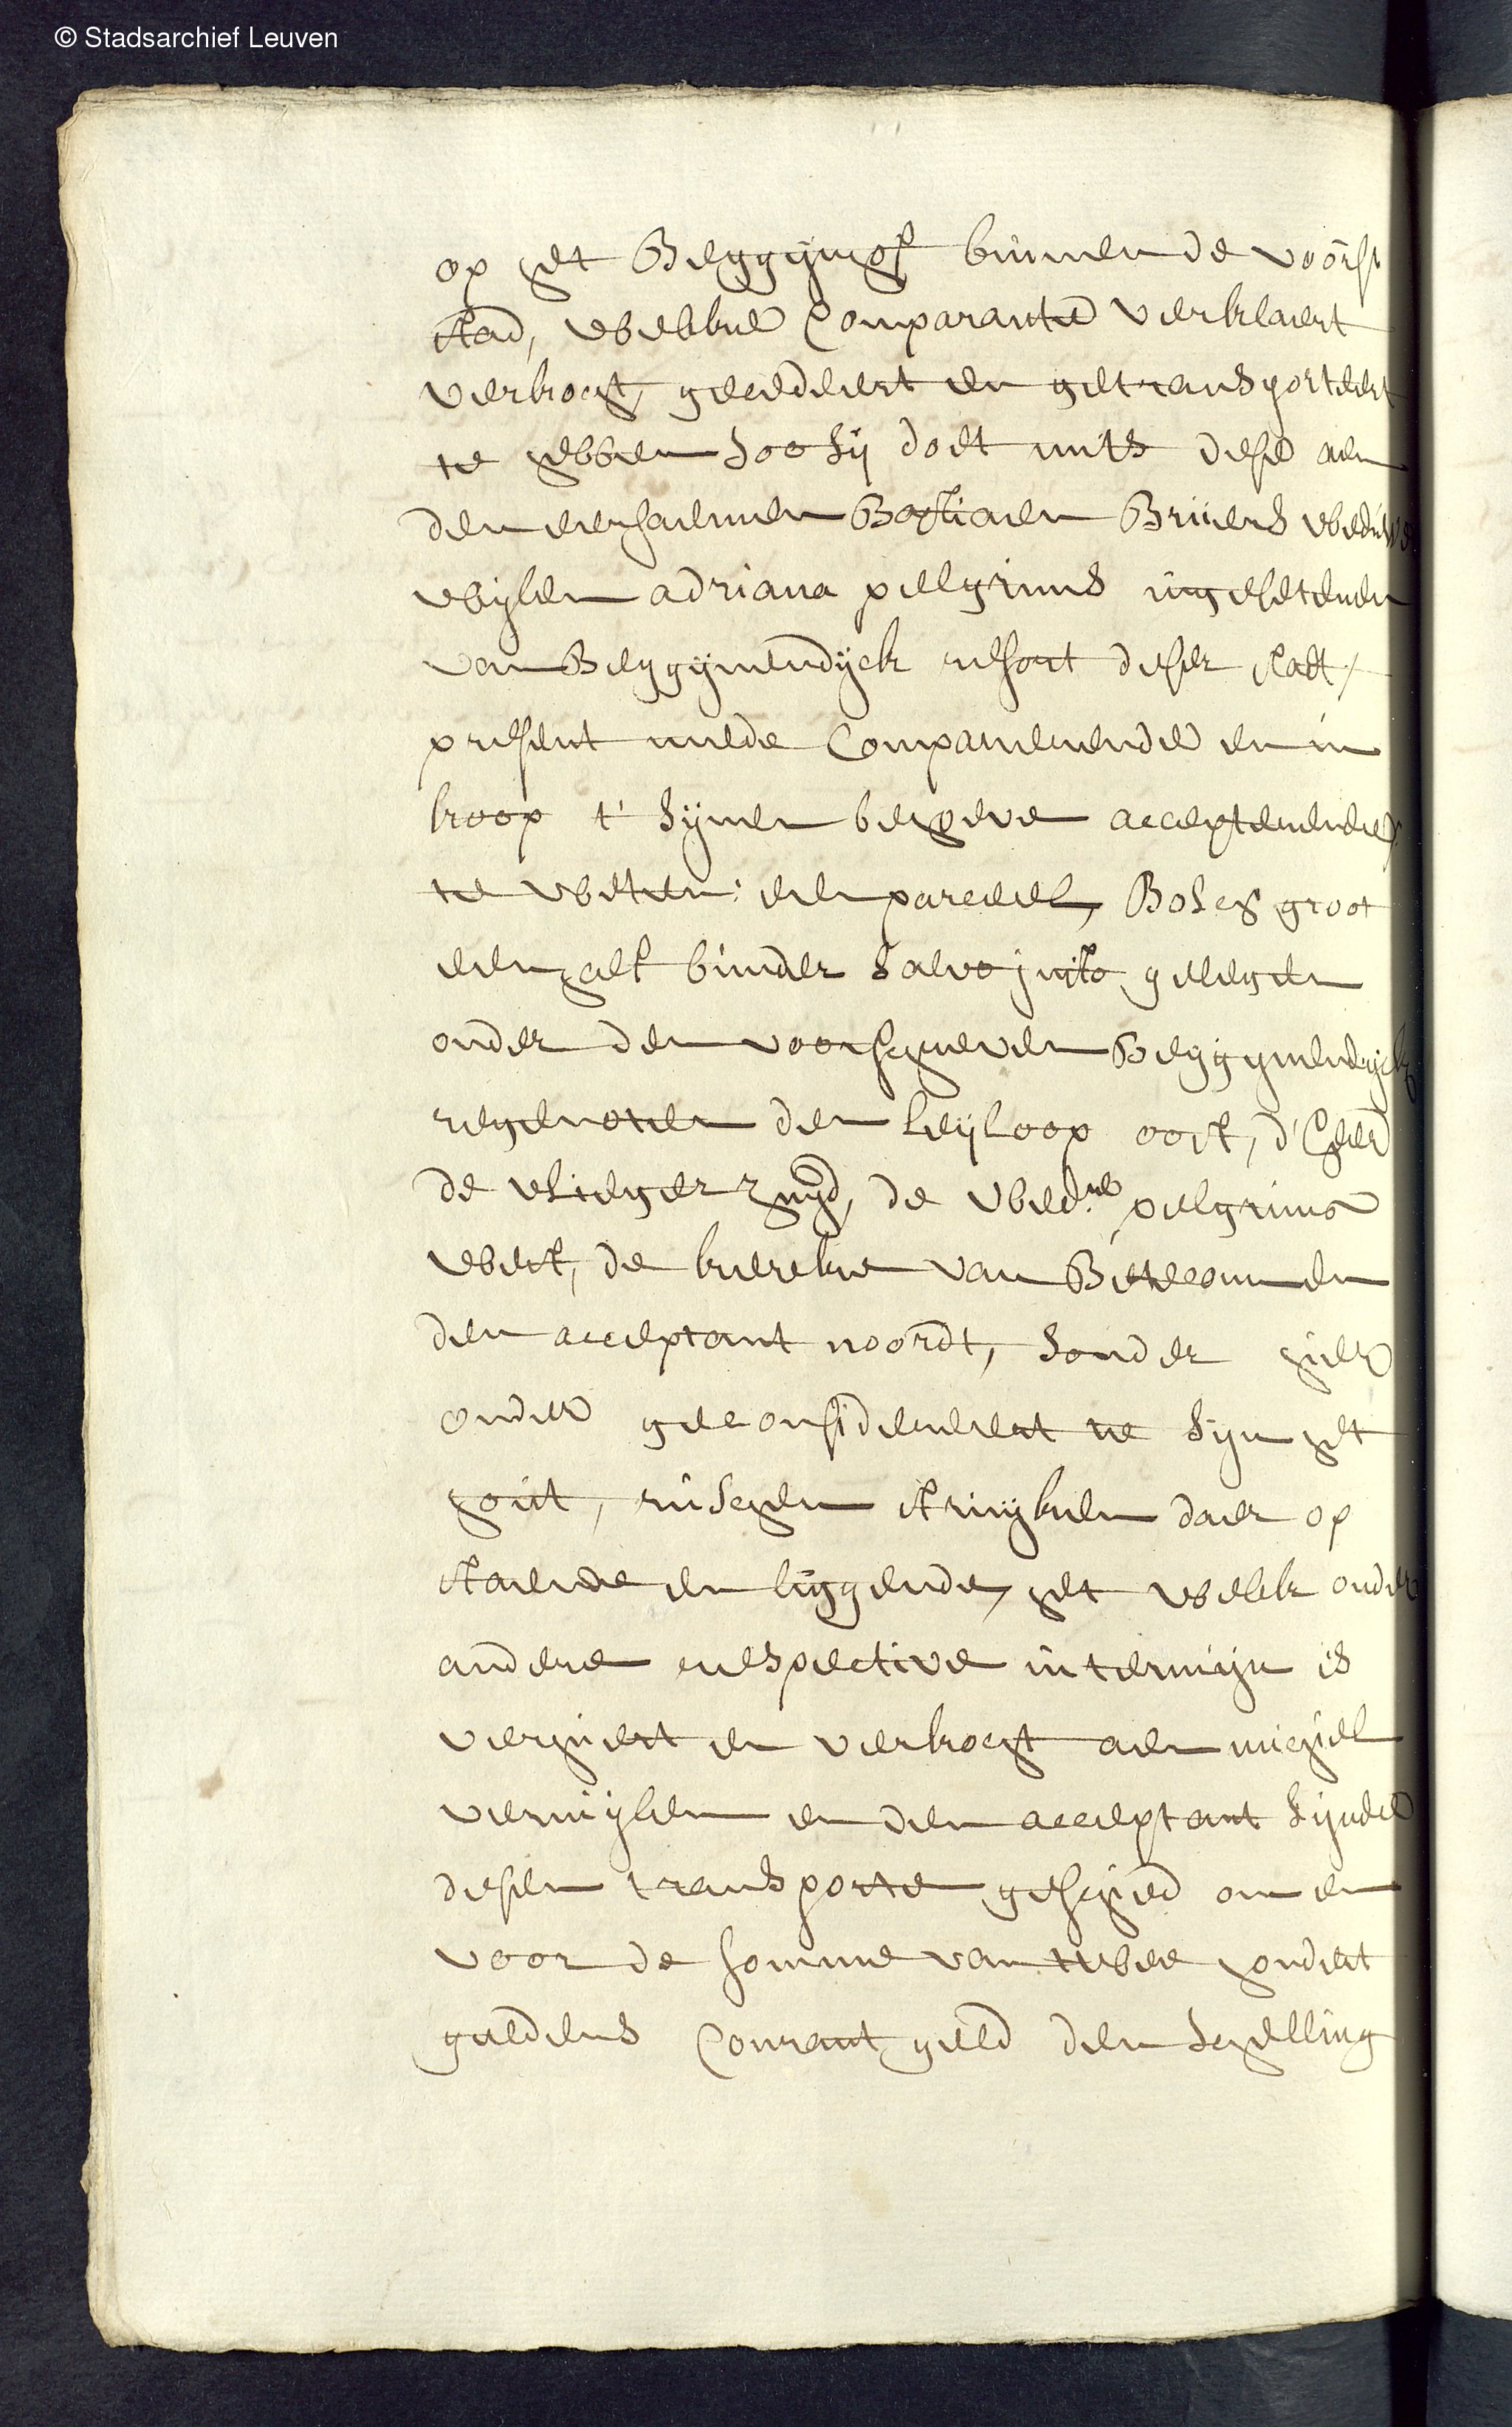 © Stadsarchief Leuven
op het Beggijnhof binnen de voors:
stad, welcke Comparante verklaert
verkocht, gecedeert en getransporteert
te hebben soo sij doet mits dese aen
den eersaemen Bastiaen Bruers weduwe
wijlen adriana pelgrims ingesetenen
van Beggijnendijck ressort deser stadt,
present mede Compareerende en in
koop t' sijnen behoeve accepteerende,
te weten: een parceel Bosch groot
een half bunder salvo justo gelegen
onder den voorschreven Beggijnendijck
regenoten den leijloop oost, d'heer
de vlieger zuyd, de wed.we pelgrims
west, de kercke van Betecom en
den acceptant noordt, sonder hier
onder geconsidereert te sijn het
hout, risschen struijken daer op
staende en liggende, het welck onder
andere respective in termijn is
verhuert en verkocht aen michiel
vermijlen en den acceptant sijnde
desen transporte geschied om en
voor de somme van twee hondert
guldens Courant geld den schelling